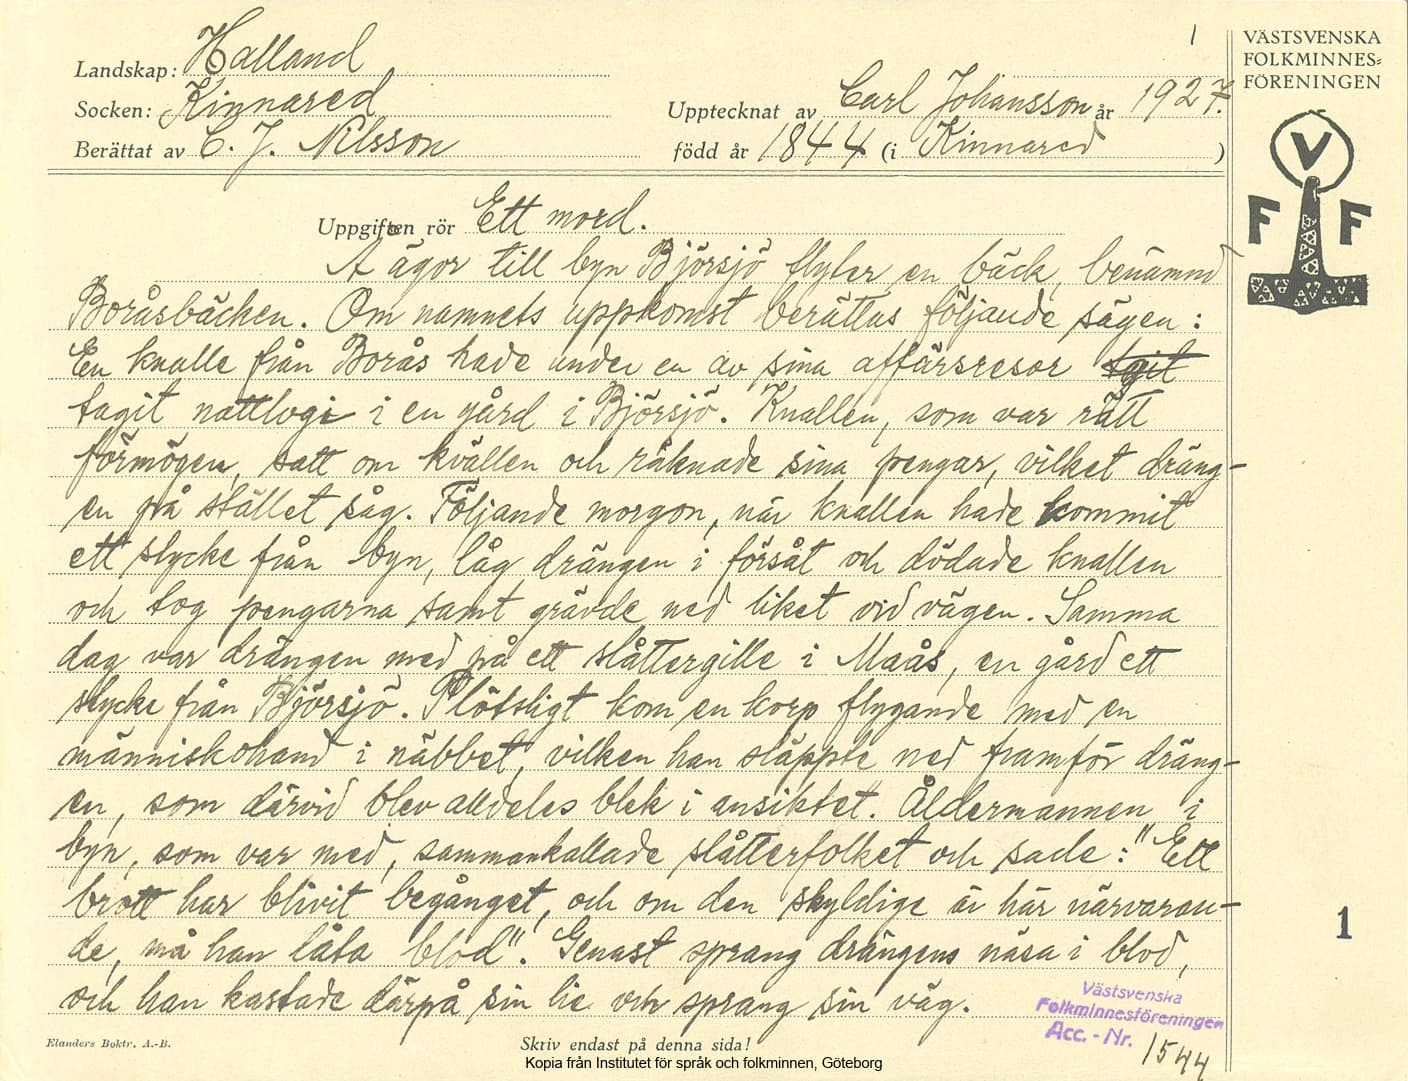 1
VÄSTSVENSKA
FOLKMINNES=
FÖRENINGEN
Landskap: Halland
Socken: Kinnared
Upptecknat av Carl Johansson år 1927.
Berättat av C. J. Nilsson
född år 1844 (i Kinnared)
V
F F
Uppgiften rör Ett mord.
Å ägor till byn Björsjö flyter en bäck, benämnd
Boråsbäcken. Om namnets uppkomst berättas följande sägen:
En knalle från Borås hade under en av sina affärsresor
tagit nattlogi i en gård i Björsjö. Knallen, som var rätt
förmögen, satt om kvällen och räknade sina pengar, vilket dräng-
en på stället såg. Följande morgon, när knallen hade kommit
ett stycke från byn, låg drängen i försåt och dödade knallen
och tog pengarna samt grävde ned liket vid vägen. Samma
dag var drängen med på ett slåttergille i Maås, en gård ett
stycke från Björsjö. Plötsligt kom en korp flygande med en
människohand i näbbet, vilken han släppte ned framför dräng-
en, som därvid blev alldeles blek i ansiktet. Åldermannen i
byn, som var med, sammankallade slåtterfolket och sade: "Ett
brott har blivit begånget, och om den skyldige är här närvaran-
de, må han låta blod"! Genast sprang drängens näsa i blod,
och han kastade därpå sin lie och sprang sin väg.
1
Västsvenska
Folkminnesföreningen
Acc.-Nr. 1544
Elanders Boktr. A.-B.
Skriv endast på denna sida!
Kopia från Institutet för språk och folkminnen, Göteborg